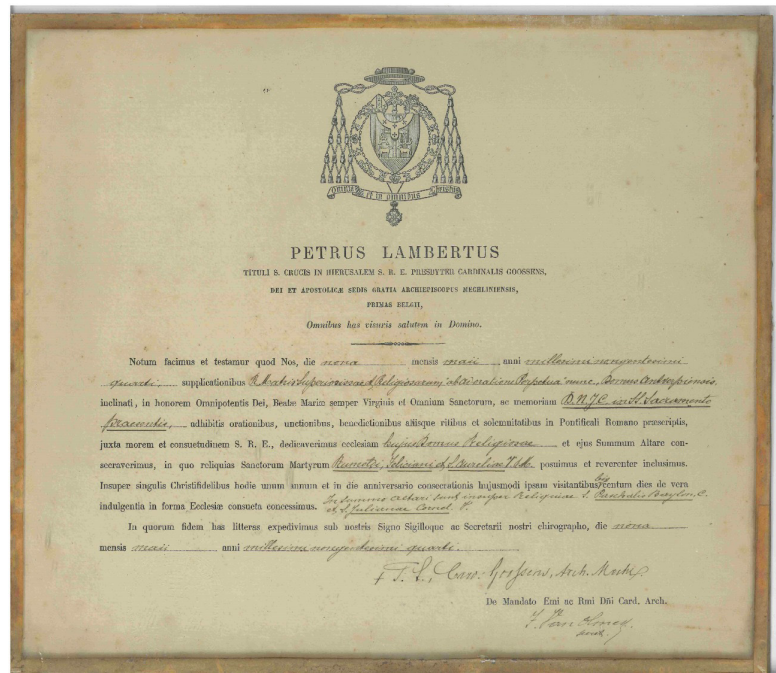 omnia et in omnibus Christus
PETRUS LAMBERTUS
TITULI S. CRUCIS IN HIERUSALEM S. R. E. PRESBYTER CARDINALIS GOOSSENS,
DEI ET APOSTOLICÆ SEDIS GRATIA ARCHIEPISCOPUS MECHLINIENSIS,
PRIMAS BELGII,
Omnibus has visuris salutem in Domino.
Notum facimus et testamur quod Nos, die nona mensis maii anni millesimi nongentesimi
quarti, supplicationibus R. Matris Superiorissae et Religiosarum ab Adoratione Perpetua nunc., Domus Antverpiensis
inclinati, in honorem Omnipotentis Dei, Beatæ Mariæ semper Virginis et Omnium Sanctorum, ac memoriam D.N.J.C. in SS. Sacramento
praesentis, adhibitis orationibus, unctionibus, benedictionibus aliisque ritibus et solemnitatibus in Pontificali Romano præscriptis,
juxta morem et consuetudinem S. R. E., dedicaverimus ecclesiam hujus Domus Religiosae et ejus Summum Altare con-
secraverimus, in quo reliquias Sanctorum Martyrum Rumoldi, Feliciani et S. Aureliae V. & M. posuimus et reverenter inclusimus.
Insuper singulis Christifidelibus hodie unum annum et in die anniversario consecrationis hujusmodi ipsam visitantibus centum dies de vera
indulgentia in forma Ecclesiæ consueta concessimus. In summo altari sunt insuper Reliquiae S. Paschalis Baylon, C.
et S. Julianae Cornel. V.
In quorum fidem has litteras expedivimus sub nostris Signo Sigilloque ac Secretarii nostri chirographo, die nona
mensis maii anni millesimi nongentesimi quarti.
† P. L., Card. Goossens, Arch. Mechl.
De Mandato Emi ac Rmi Dñi Card. Arch.